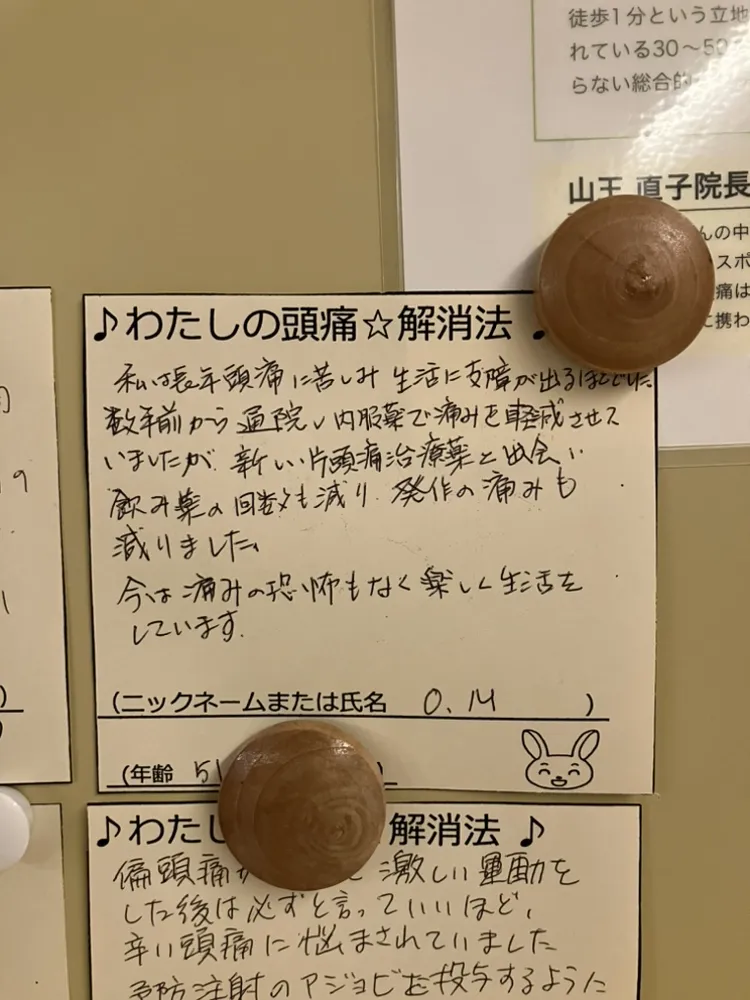 徒歩1分という立地
れている30〜50
らない総合的
山王 直子院長
んの中
スポ
痛は
に携わ
♪わたしの頭痛☆解消法
私は長年頭痛に苦しみ 生活に支障が出るほどでした
数年前から通院し内服薬で痛みを軽減させて
いましたが 新しい片頭痛治療薬と出会い
飲み薬の回数も減り、発作の痛みも
減りました。
今は痛みの恐怖もなく楽しく生活を
しています。
(ニックネームまたは氏名 O.M )
(年齢 51 )
♪わたし 解消法 ♪
偏頭痛 激しい運動を
した後は必ずと言っていいほど、
辛い頭痛に悩まされていました
予防注射のアジョビを投与するように